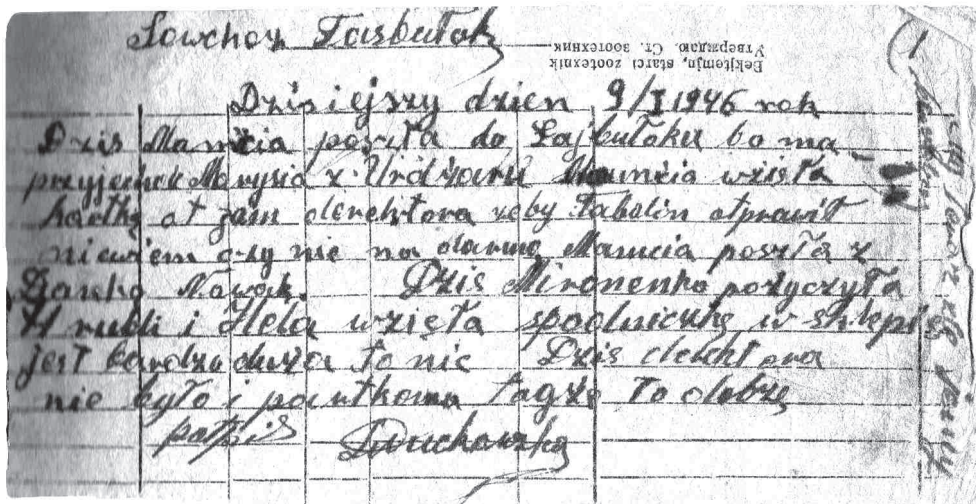 Sowchoz Tasbułak
Утверждаю. Ст. зоотехник
Bekitemjn, starci zootexnik
Dzisiejszy dzien 9/I 1946 rok
Dzis Mamcia poszła do Łajbułaku bo ma
przyjechać Marysia z Urdżaru Mamcia wzieła
kartkę ot zam derektora żeby Tabolin otprawił
niewiem czy nie na darmo Mamcia poszła z
Danką Nowak. Dzis Mironenko pożyczyła
4 rubli i Hela wzięła spodniczkę w sklepie
jest bardzo duża to nic Dzis derektora
nie było i partkoma tagże to dobrze
potpis